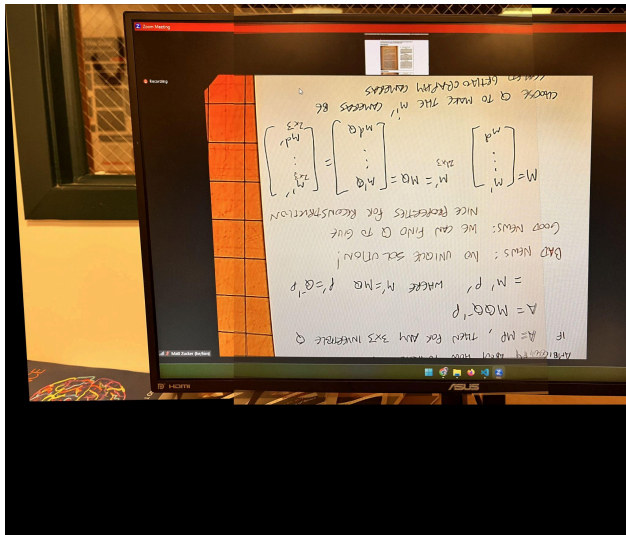 Zoom Meeting
Recording
AMBIGUITY ABOUT HOW
IF A = MP, THEN FOR ANY 3x3 INVERTIBLE Q
A = MQQ⁻¹P
= M' P' WHERE M' = MQ P' = Q⁻¹P
BAD NEWS: NO UNIQUE SOLUTION!
GOOD NEWS: WE CAN FIND Q TO GIVE
NICE PROPERTIES FOR RECONSTRUCTION
M = [m₁ ⋮ md] M' = MQ = [m₁Q ⋮ mdQ] = [m₁' ⋮ md'] 2x3 2x3
CHOOSE Q TO MAKE THE mᵢ' CAMERAS BE
CAMERAS
Matt Zucker (he/him)
HDMI
ASUS